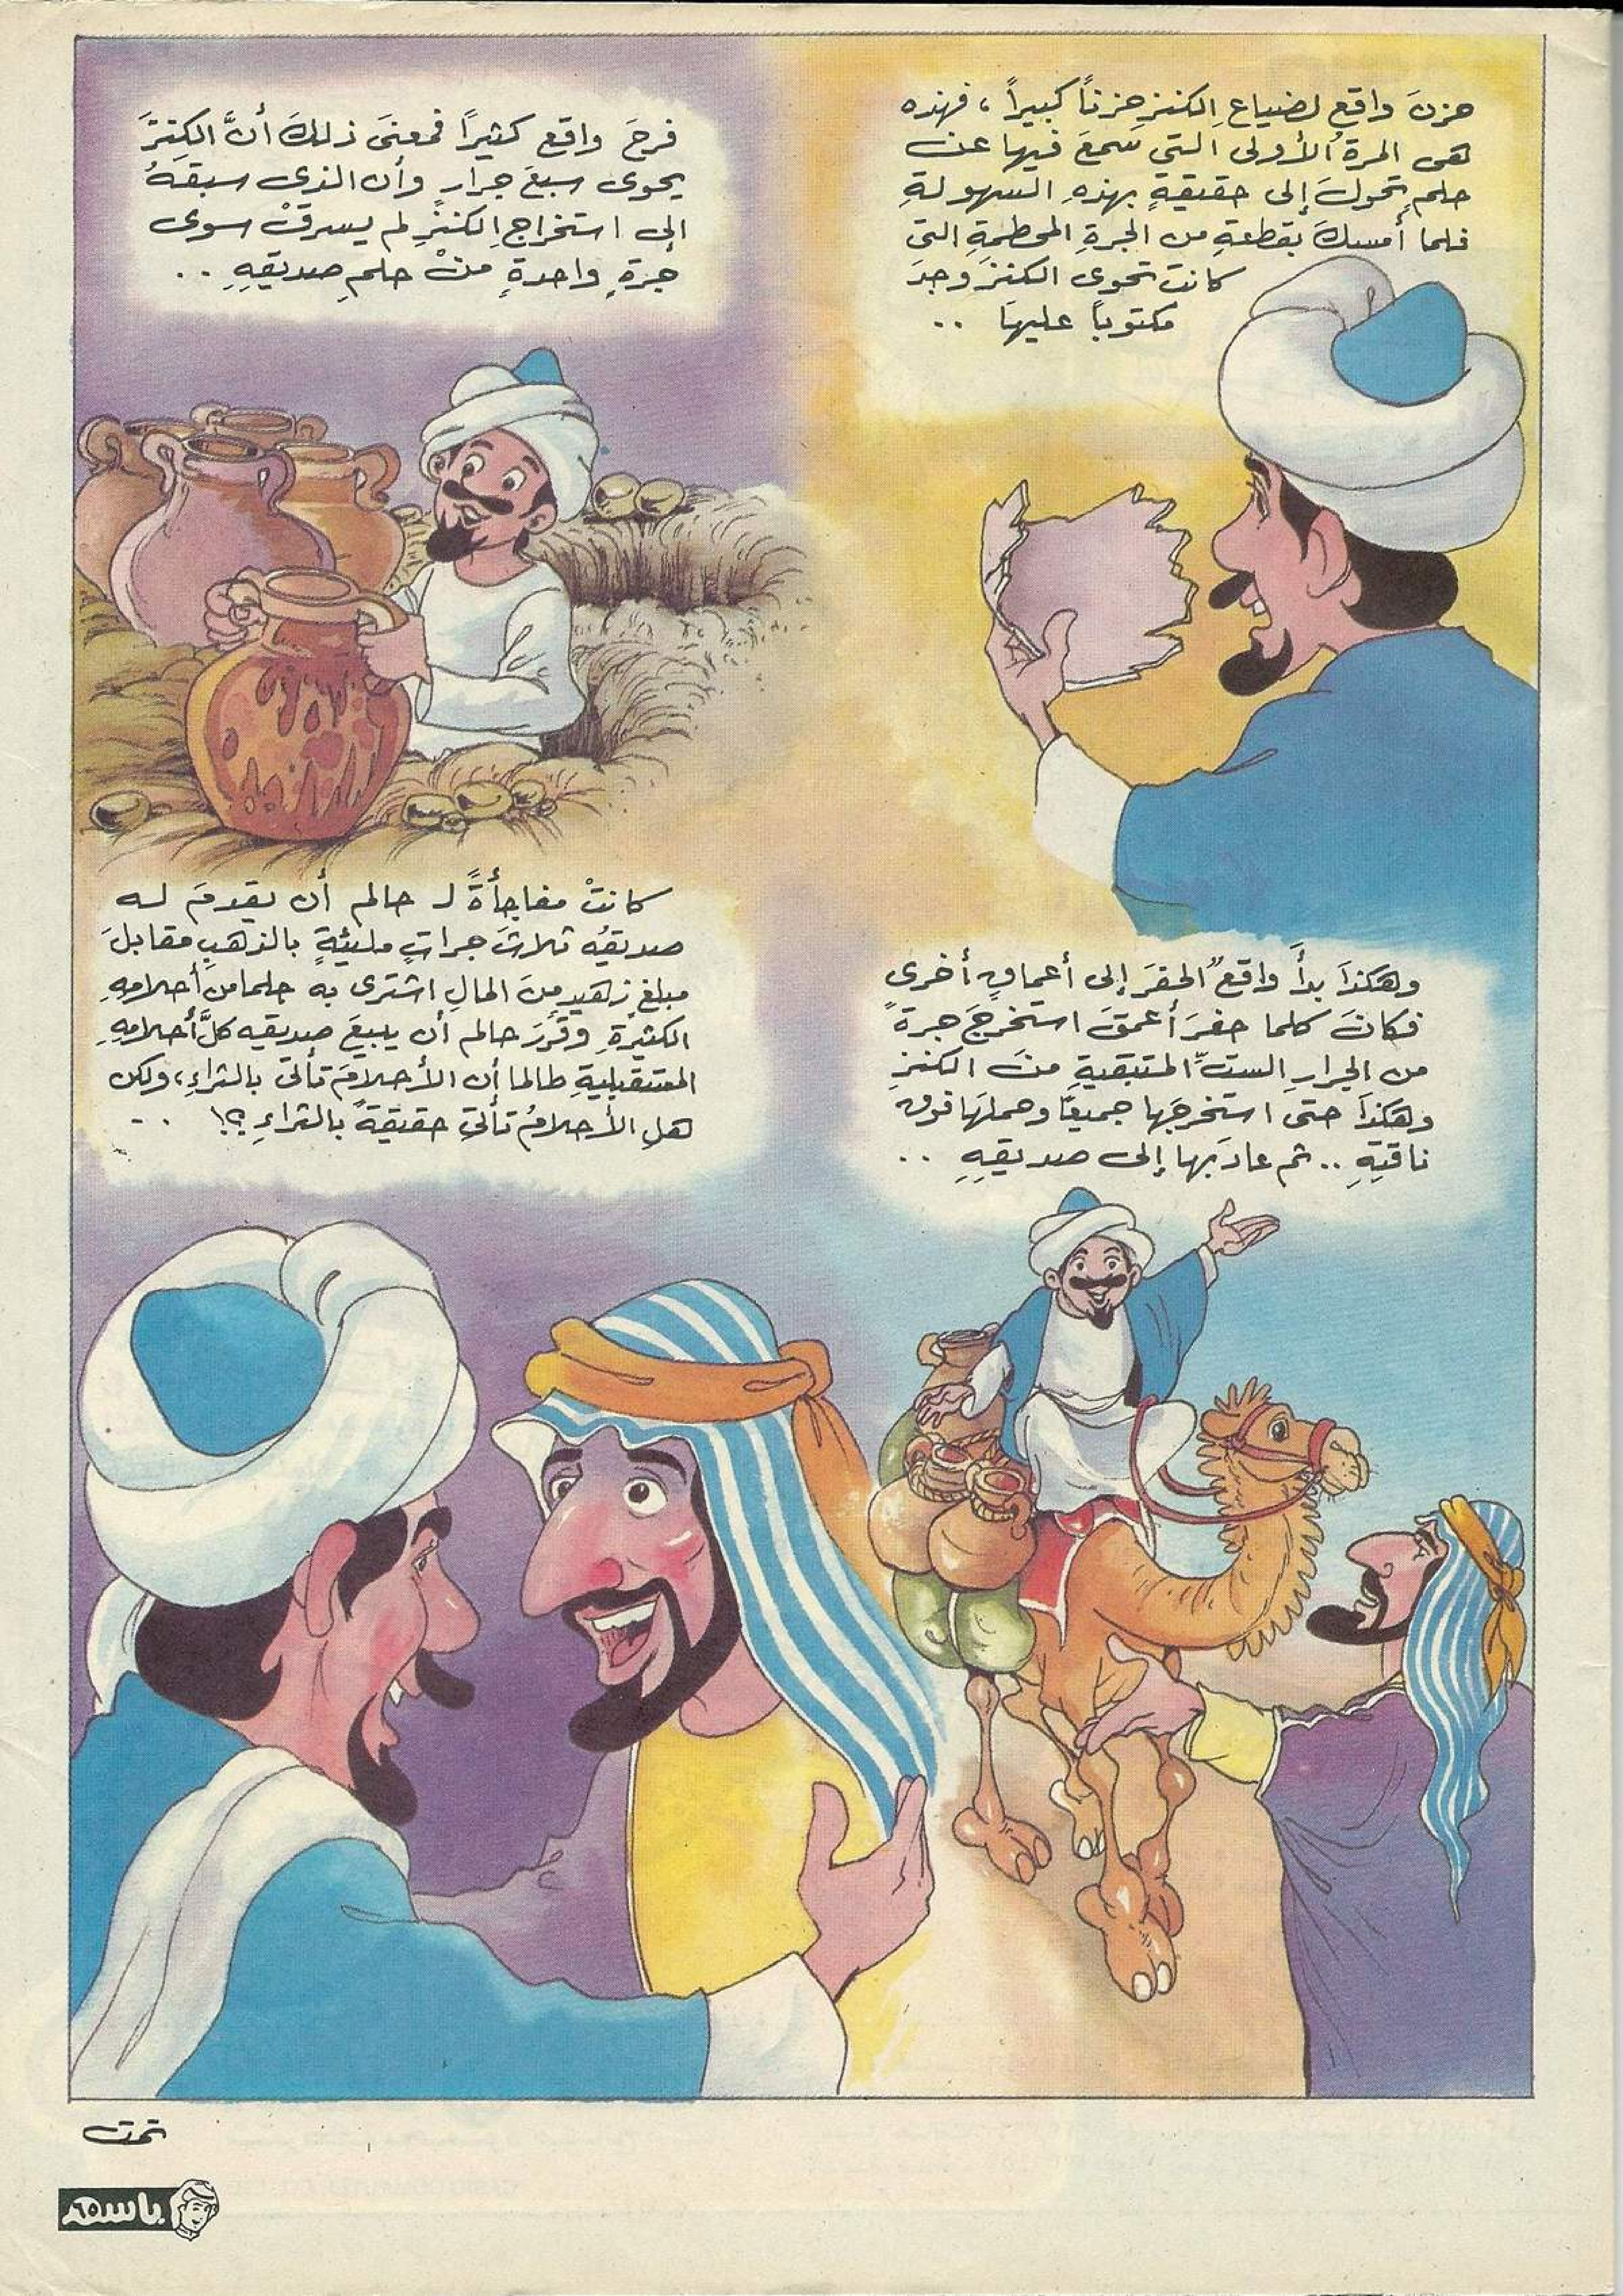 حزنَ واقع لضياعِ الكنزِ حزناً كبيراً ، فهذه
هى المرةُ الأولى التي سَمعَ فيها عن
حلمٍ تحولَ إلى حقيقةٍ بهذهِ السهولةِ
فلما أمسكَ بقطعةٍ من الجرةِ المحطمةِ التى
كانت تحوى الكنزَ وجدَ
مكتوباً عليهَا ..
فرحَ واقع كثيراً فمعنىَ ذلكَ أنَّ الكنزَ
يحوى سبعَ جرارٍ وأن الذى سبقهُ
إلى استخراجِ الكنزِ لم يسرقْ سوى
جرةٍ واحدةٍ منْ حلمِ صديقهِ ..
وهكذَا بدأَ واقع الحفرَ إلى أعماقٍ أخرى
فكانَ كلما حفرَ أعمقَ استخرجَ جرةً
من الجرارِ الستِّ المتبقيةِ منَ الكنزِ
وهكذَا حتى استخرجَها جميعًا وحملَها فوق
ناقتِهِ .. ثم عادَ بها إلى صديقِهِ ..
كانتْ مفاجأةً لـ حالم أن يقدمَ له
صديقُه ثلاثَ جراتٍ مليئةٍ بالذهبِ مقابلَ
مبلغٍ زهيدٍ منَ المالِ اشترى به حلما من أحلامهِ
الكثيرةِ وقررَ حالم أن يبيعَ صديقه كلَّ أحلامهِ
المستقبليةِ طالما أن الأحلامَ تأتى بالثراءِ، ولكن
هلِ الأحلامُ تأتى حقيقةً بالثراءِ ؟! ..
تمت
باسم